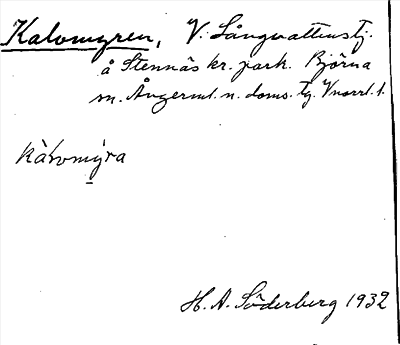 Kalvmyren, V. Långvattenstj.
å Stennäs kr. park. Björna
sn. Ångerml. n. doms. tg. Vnorrl. l.
kàlvmýra
H. A. Söderberg 1932